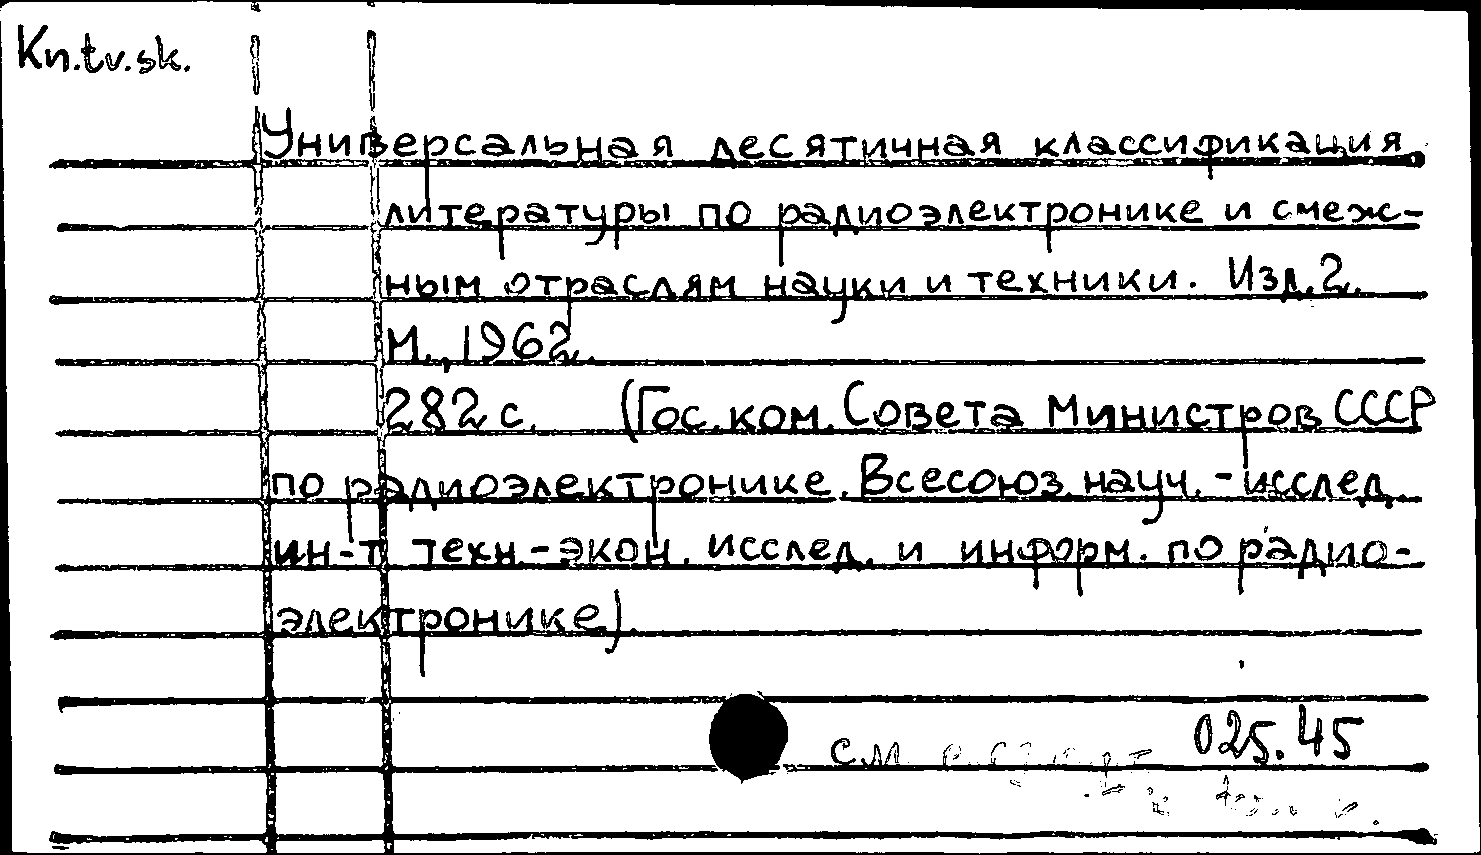 Kn.tv.sk.
Универсальная десятичная классификация
литературы по радиоэлектронике и смеж-
ным отраслям науки и техники. Изд.2.
М., 1962.
282 с. (Гос. ком. Совета Министров СССР
по радиоэлектронике. Всесоюз. науч.-исслед.
ин-т техн.-экон. исслед. и информ. по радио-
электронике).
025.45
см